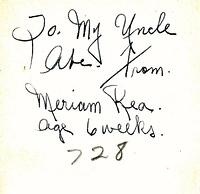 To. My Uncle
Abe. From.
Meriam Kea.
age 6 weeks.
728